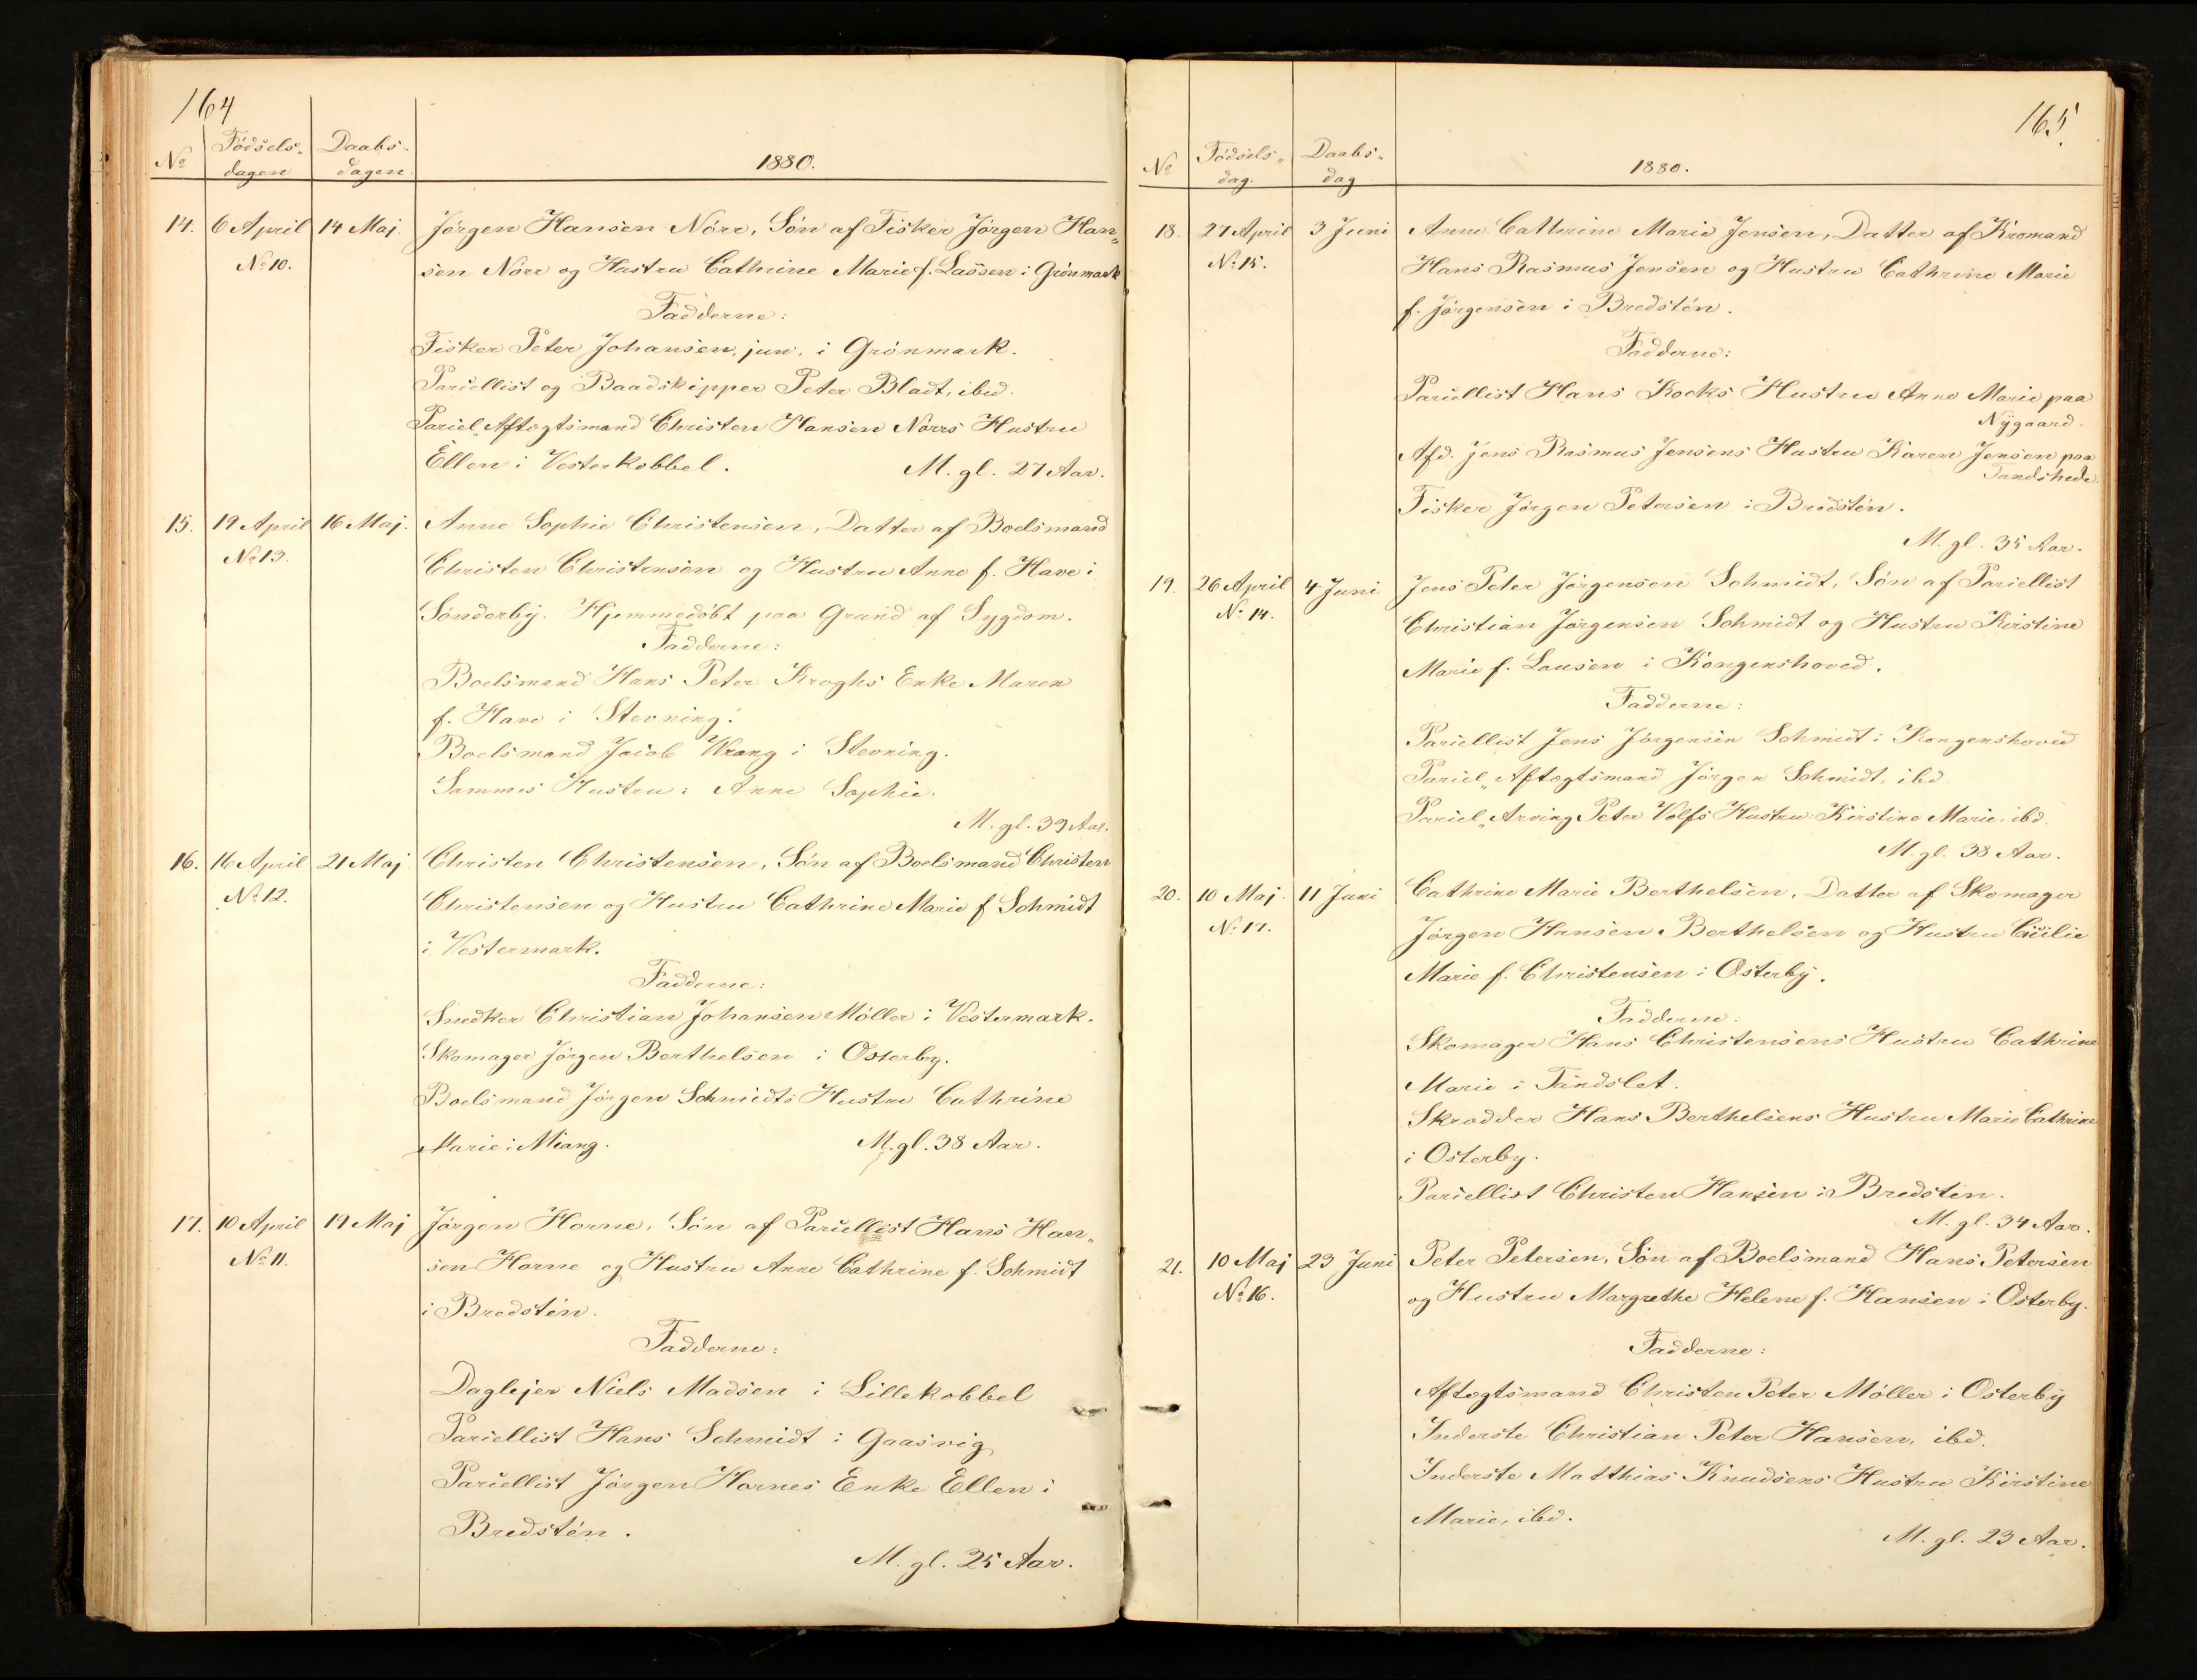 164
No Födsels- dagen Daabs- dagen. 1880.
14. 6 April 14 Maj. Jörgen Hansen Nörr, Sön af Fisker Jörgen Han„
No 10. sen Nörr og Hustru Cathrine Marie f. Lassen i Grönmark
Fadderne:
Fisker Peter Johansen, jun, i Grönmark.
Parcellist og Baadskipper Peter Bladt, ibid.
Parcel„Aftægtsmand Christen Hansen Nörrs Hustru
Ellen i Vesterkobbel. M. gl. 27 Aar.
15. 19 April 16 Maj. Anne Sophie Christensen, Datter af Boelsmand
No 13. Christen Christensen og Hustru Anne f. Have i
Sönderby. Hjemmedöbt paa Grund af Sygdom.
Fadderne:
Boelsmand Hans Peter Kroghs Enke Maren
f. Have i Stevning.
Boelsmand Jacob Wrang i Stevning.
Sammes Hustru: Anne Sophie.
M. gl. 39 Aar.
16. 16 April 21 Maj Christen Christensen, Sön af Boelsmand Christen
No 12. Christensen og Hustru Cathrine Marie f Schmidt
i Vestermark.
Fadderne:
Snedker Christian Johansen Möller i Vestermark.
Skomager Jörgen Berthelsen i Osterby.
Boelsmand Jörgen Schmidts Hustru Cathrine
Marie i Miang. M. gl. 38 Aar.
17. 10 April 19 Maj Jörgen Horne, Sön af Parcellist Hans Han„
No 11. sen Horne og Hustru Anne Cathrine f. Schmidt
i Bredstén.
Fadderne:
Daglejer Niels Madsen i Lillekobbel
Parcellist Hans Schmidt i Gaasvig
Parcellist Jörgen Hornes Enke Ellen i
Bredstén.
M. gl. 25 Aar.
165
No Födsels„ dag. Daabs„ dag 1880.
18. 27 April 3 Juni Anne Cathrine Marie Jensen, Datter af Kromand
No 15. Hans Rasmus Jensen og Hustru Cathrine Marie
f. Jörgensen i Bredstén.
Fadderne:
Parcellist Hans Kocks Hustru Anne Marie paa
Nygaard.
Afd. Jens Rasmus Jensens Hustru Karen Jensen paa
Tandshede.
Fisker Jörgen Petersen i Bredstén.
M. gl. 35 Aar.
19. 26 April 4 Juni Jens Peter Jörgensen Schmidt, Sön af Parcellist
No 14. Christian Jörgensen Schmidt og Hustru Kirstine
Marie f. Lausen i Kongenshoved.
Fadderne:
Parcellist Jens Jörgensen Schmidt i Kongenshoved
Parcel„Aftægtsmand Jörgen Schmidt, ibd.
Parcel„Arving Peter Volfs Hustru: Kirstine Marie. ibd.
M. gl. 38 Aar.
20. 10 Maj 11 Juni Cathrine Marie Berthelsen, Datter af Skomager
No 17. Jörgen Hansen Berthelsen og Hustru Cicilie
Marie f. Christensen i Osterby.
Fadderne:
Skomager Hans Christensens Hustru Cathrine
Marie i Tandslet.
Skrædder Hans Berthelsens Hustru Marie Cathrine
i Osterby.
Parcellist Christen Hansen i Bredsten.
M. gl. 34 Aar.
21. 10 Maj 23 Juni Peter Petersen, Sön af Boelsmand Hans Petersen
No 16. og Hustru Margrethe Helene f. Hansen i Osterby.
Fadderne:
Aftægtsmand Christen Peter Möller i Osterby
Inderste Christian Peter Hansen, ibd.
Inderste Matthias Knudsens Hustru Kirstine
Marie, ibd.
M. gl. 23 Aar.